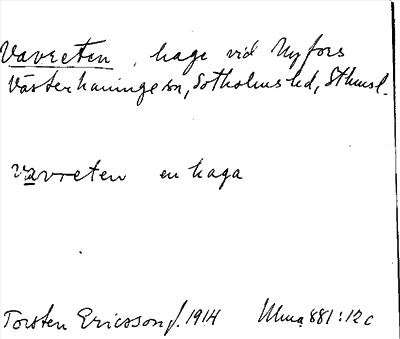 Vavreten, hage vid Nyfors
Västerhaninge sn, Sotholms hd, Sthmsl.
Vavreten en haga
Torsten Ericsson f. 1914 Uma 881:12c